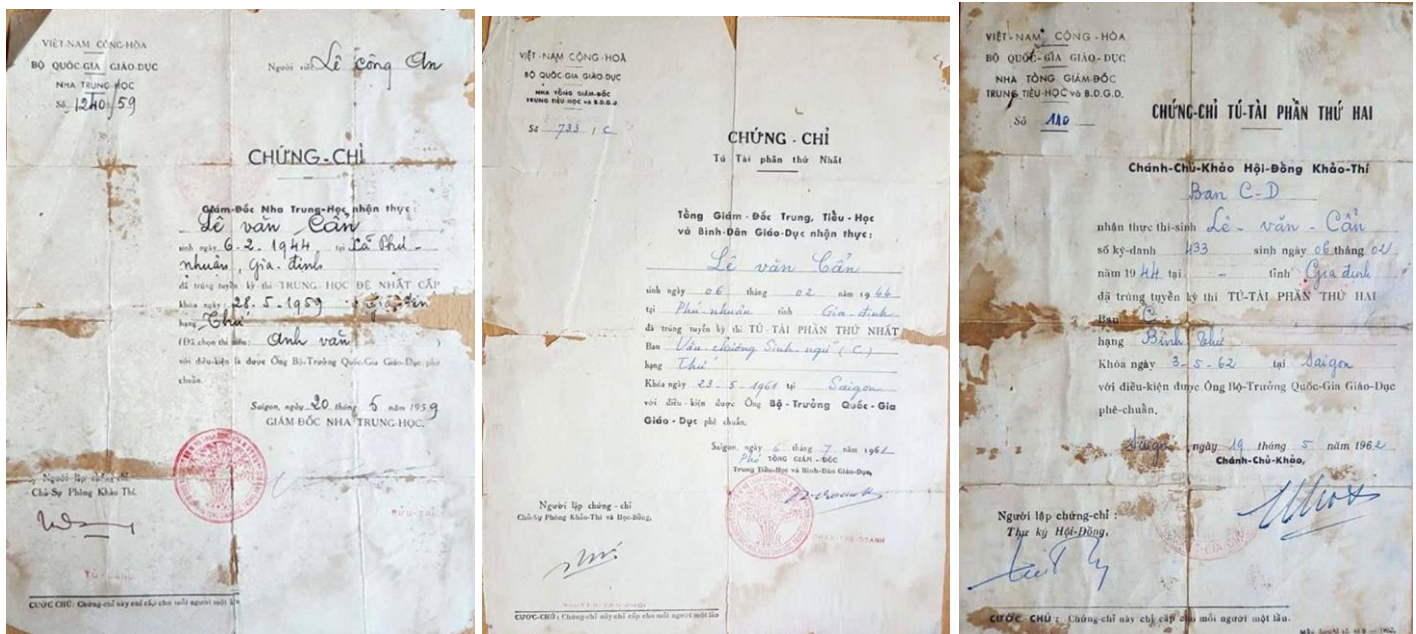 VIỆT-NAM CỘNG-HÒA
BỘ QUỐC-GIA GIÁO-DỤC
NHA TRUNG-HỌC
Số 1240/59
Người viết Lê công An
CHỨNG-CHỈ
Giám-Đốc Nha Trung-Học nhận thực:
Lê văn Cẩn
sinh ngày 6.2.1944 tại Xã Phú-
nhuận, Gia-định
đã trúng tuyển kỳ thi TRUNG-HỌC ĐỆ NHẤT CẤP
khóa ngày 28.5.1959
hạng Thứ
(Đã chọn thi Anh văn)
với điều-kiện là được Ông Bộ-Trưởng Quốc-Gia Giáo-Dục phê
chuẩn.
Saigon, ngày 20 tháng 6 năm 1959
GIÁM-ĐỐC NHA TRUNG-HỌC.
Người lập chứng-chỉ
Chủ-Sự Phòng Khảo Thí.
CƯỚC CHÚ: Chứng-chỉ này chỉ cấp cho mỗi người một lần
VIỆT-NAM CỘNG-HOÀ
BỘ QUỐC-GIA GIÁO-DỤC
NHA TỔNG GIÁM-ĐỐC
TRUNG TIỂU-HỌC và B.D.G.D.
Số 733 / C
CHỨNG - CHỈ
Tú Tài phần thứ Nhất
Tổng Giám-Đốc Trung, Tiểu-Học
và Bình-Dân Giáo-Dục nhận thực:
Lê văn Cẩn
sinh ngày 06 tháng 02 năm 1944
tại Phú-nhuân tỉnh Gia-định
đã trúng tuyển kỳ thi TÚ-TÀI PHẦN THỨ NHẤT
Ban Văn chương Sinh-ngữ (C)
hạng Thứ
Khóa ngày 23-5-1961 tại Saigon
với điều-kiện được Ông Bộ-Trưởng Quốc-Gia
Giáo-Dục phê chuẩn.
Saigon, ngày 6 tháng 7 năm 1961
Phó TỔNG GIÁM-ĐỐC
Trung Tiểu-Học và Bình-Dân Giáo-Dục,
Người lập chứng-chỉ
Chủ-Sự Phòng Khảo-Thí và Học-Bổng,
CƯỚC-CHÚ: Chứng-chỉ này chỉ cấp cho mỗi người một lần
VIỆT-NAM CỘNG-HÒA
BỘ QUỐC-GIA GIÁO-DỤC
NHA TỔNG GIÁM-ĐỐC
TRUNG TIỂU-HỌC và B.D.G.D.
Số 110
CHỨNG-CHỈ TÚ-TÀI PHẦN THỨ HAI
Chánh-Chủ-Khảo Hội-Đồng Khảo-Thí
Ban C-D
nhận thực thí-sinh Lê-văn-Cẩn
số ký-danh 433 sinh ngày 06 tháng 02
năm 1944 tại - tỉnh Gia định
đã trúng tuyển kỳ thi TÚ-TÀI PHẦN THỨ HAI
Ban C
hạng Bình thứ
Khóa ngày 3-5-62 tại Saigon
với điều-kiện được Ông Bộ-Trưởng Quốc-Gia Giáo-Dục
phê-chuẩn.
Saigon, ngày 19 tháng 5 năm 1962
Chánh-Chủ-Khảo,
Người lập chứng-chỉ:
Thư ký Hội-Đồng,
CƯỚC CHÚ: Chứng-chỉ này chỉ cấp cho mỗi người một lần.